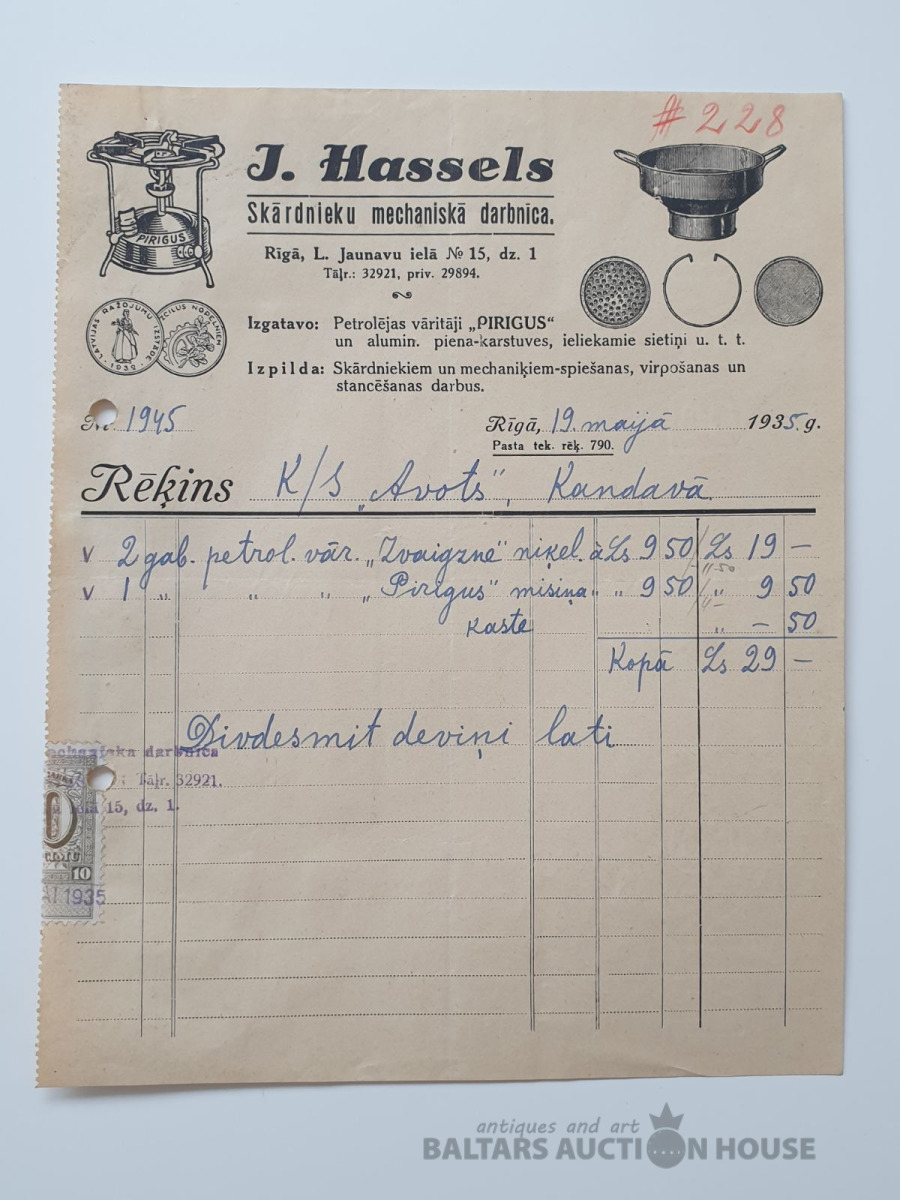 # 228
J. Hassels
Skārdnieku mechaniskā darbnīca.
Rīgā, L. Jaunavu ielā № 15, dz. 1
Tāļr.: 32921, priv. 29894.
PIRIGUS
LATVIJAS RAŽOJUMU IZSTĀDE 1932
IZCILUS NOPELNIEM
Izgatavo: Petrolējas vārītāji „PIRIGUS“
un alumin. piena-karstuves, ieliekamie sietiņi u. t. t.
Izpilda: Skārdniekiem un mechaniķiem-spiešanas, virpošanas un
stancēšanas darbus.
№ 1945
Rīgā, 19. maijā 1935. g.
Pasta tek. rēķ. 790.
Rēķins K/S „Avots“, Kandavā.
v 2 gab. petrol. vār. „Zvaigzne“ niķel. à Ls 9 50 Ls 19 —
11-50
v 1 „ „ „ „Pirigus“ misiņa „ „ 9 50 „ 9 50
kaste „ — 50
Kopā Ls 29 —
Divdesmit deviņi lati
chaniska darbnica
Tāļr. 32921.
15, dz. 1.
10
1935
antiques and art
BALTARS AUCTION HOUSE